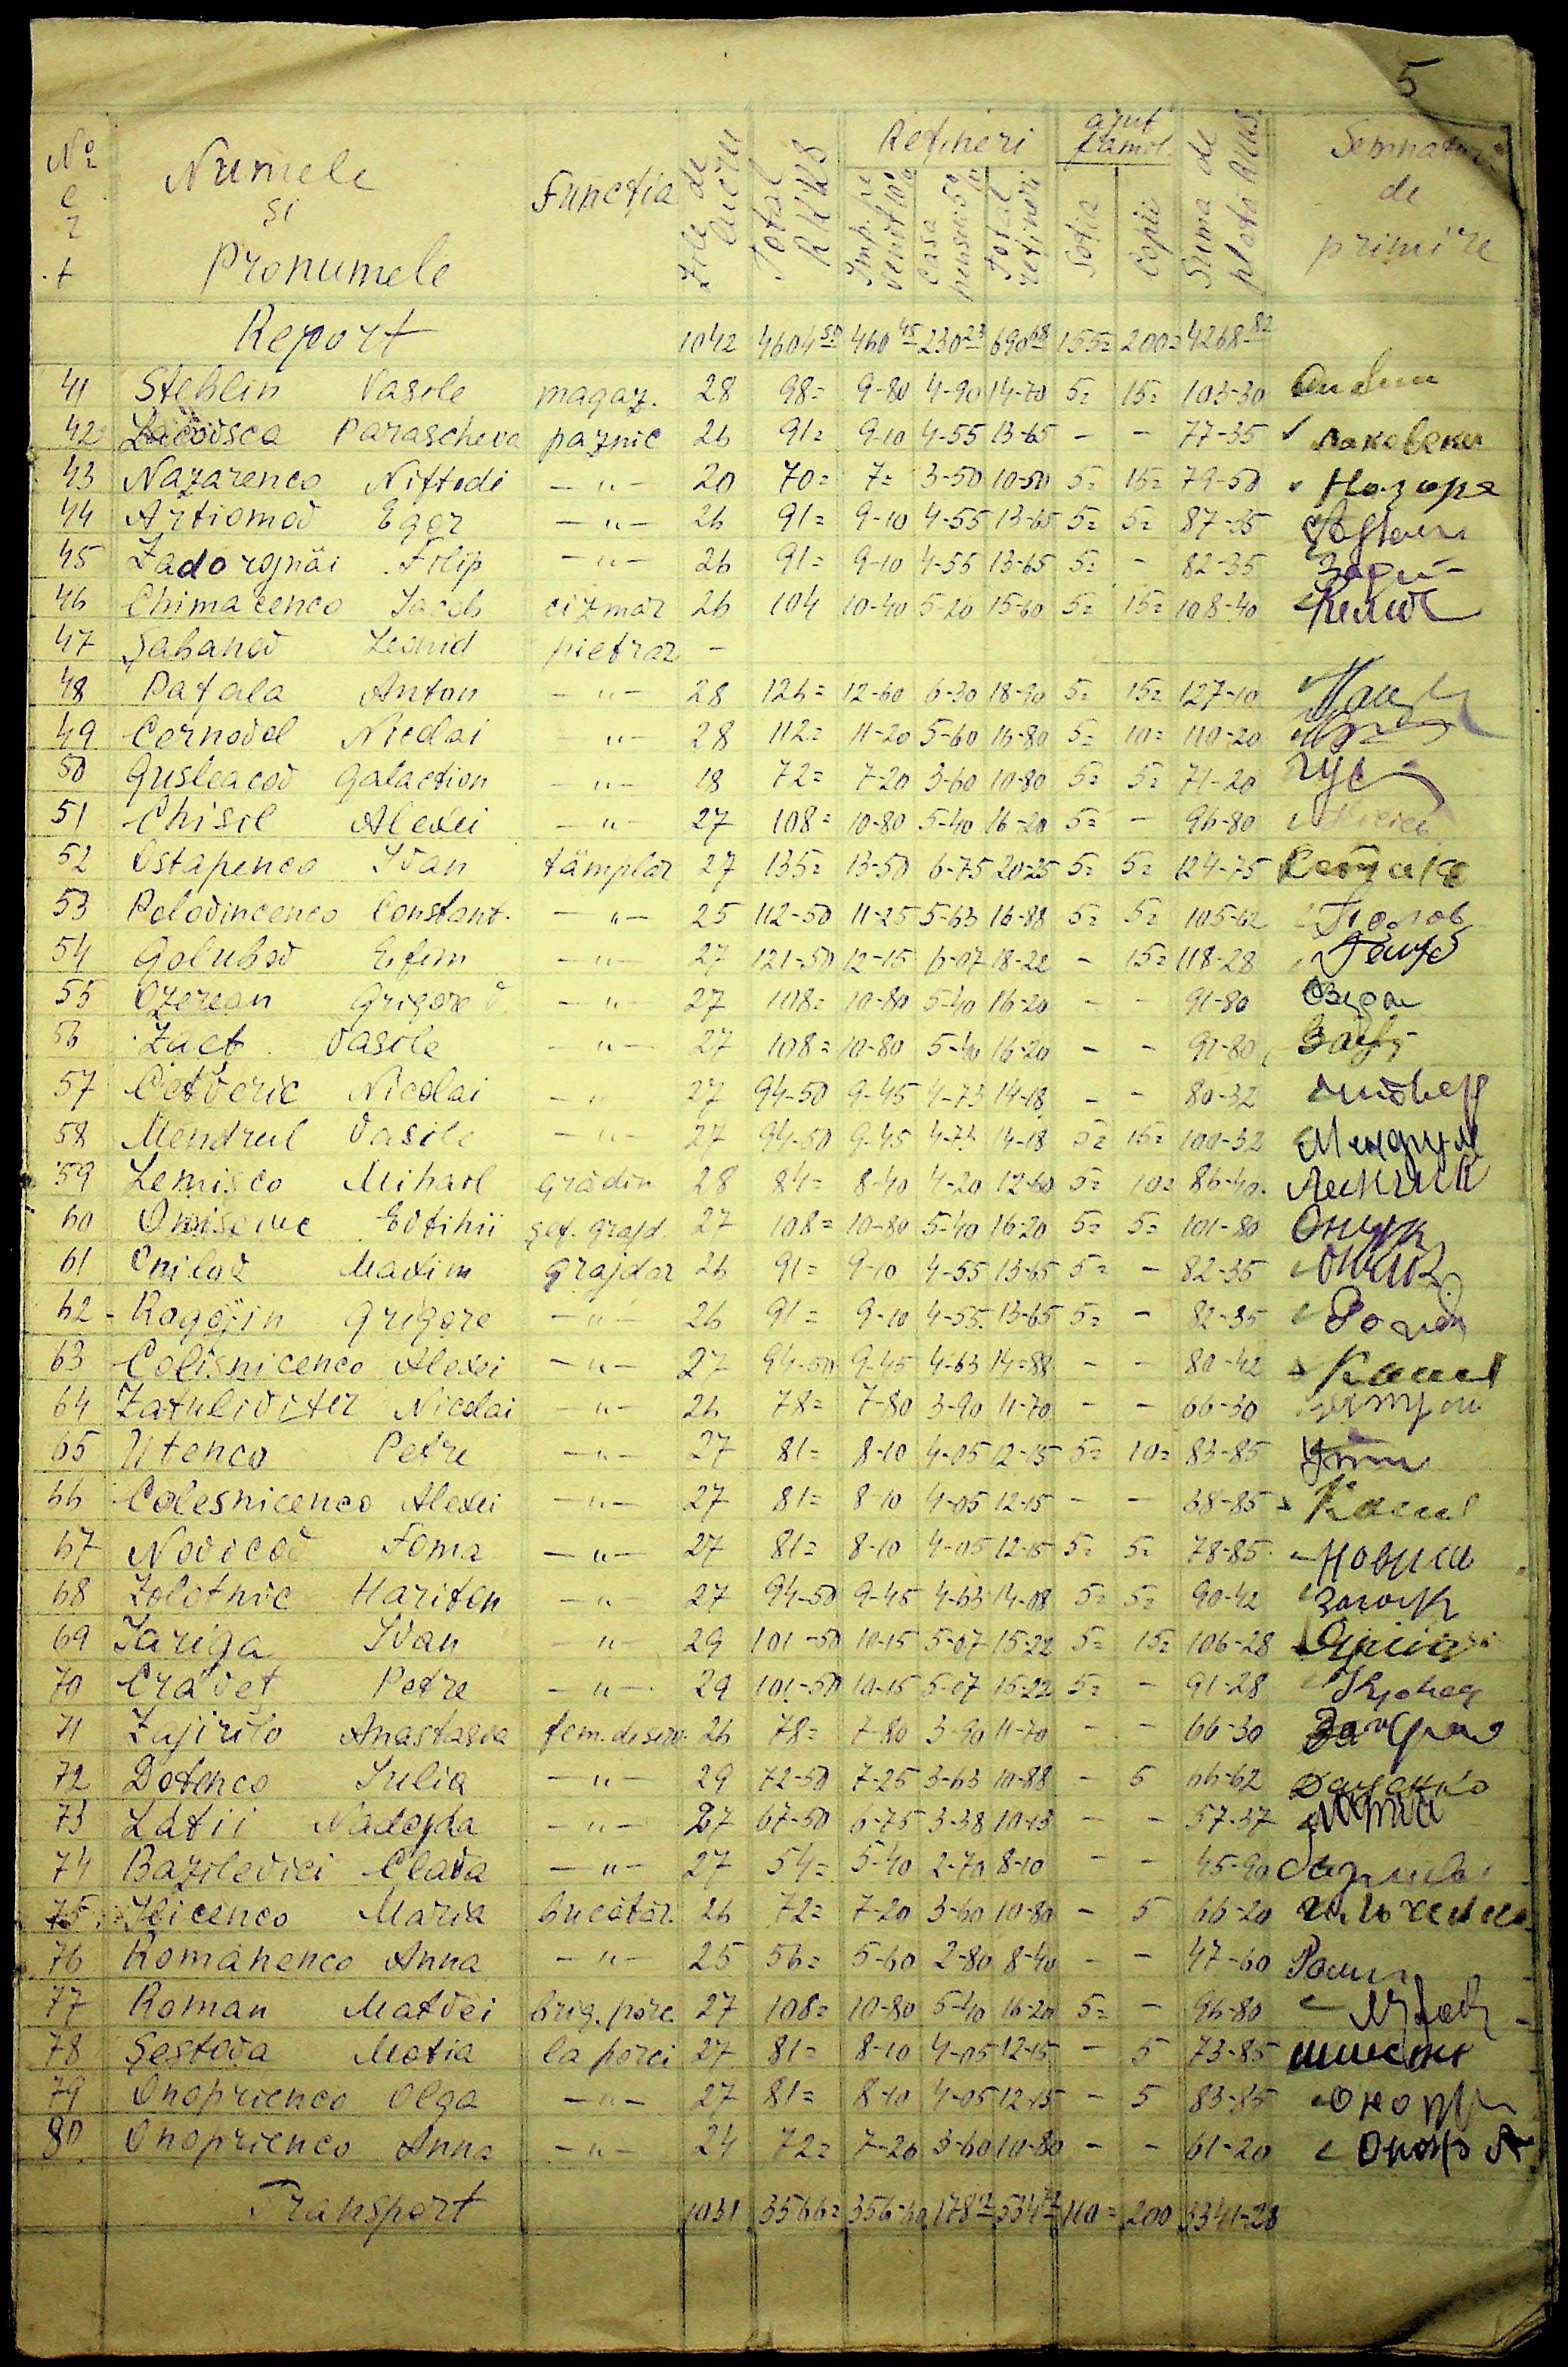 5
No c r t Numele și Pronumele Funcția Zile de lucru Total RKKS Rețineri Imp. pe venit 10% Casa pensii 5% Total rețineri ajut famil. Soția Copii Suma de plată RKKS Semnatura de primire
Report 1042 4604 50 460 45 230 23 690 68 155= 200= 4268 82
41 Steblin Vasile magaz. 28 98= 9-80 4-90 14-70 5= 15= 103-30
42 Lacovsca Parascheva paznic 26 91= 9-10 4-55 13-65 - - 77-35
43 Nazarenco Niftodi -"- 20 70= 7= 3-50 10-50 5= 15= 79-50 Назаре
44 Artiomov Egor -"- 26 91= 9-10 4-55 13-65 5= 5= 87-35
45 Zadorojnâi Filip -"- 26 91= 9-10 4-55 13-65 5= - 82-35
46 Chimacenco Iacob cizmar 26 104 10-40 5-20 15-60 5= 15= 108-40
47 Șabanov Leonid pietrar -
48 Patala Anton -"- 28 126= 12-60 6-30 18-90 5= 15= 127-10
49 Cernovol Nicolai -"- 28 112= 11-20 5-60 16-80 5= 10= 110-20
50 Gusleacov Galaction -"- 18 72= 7-20 3-60 10-80 5= 5= 71-20 Гус
51 Chisil Alexei -"- 27 108= 10-80 5-40 16-20 5= - 96-80
52 Ostapenco Ivan tâmplar 27 135= 13-50 6-75 20-25 5= 5= 124-75
53 Polovincenco Constant. -"- 25 112-50 11-25 5-63 16-88 5= 5= 105-62 Полов
54 Golubov Efim -"- 27 121-50 12-15 6-07 18-22 - 15= 118-28
55 Ozerean Grigore -"- 27 108= 10-80 5-40 16-20 - - 91-80
56 Zaeț Vasile -"- 27 108= 10-80 5-40 16-20 - - 91-80
57 Cetveric Nicolai -"- 27 94-50 9-45 4-73 14-18 - - 80-32
58 Mendrul Vasile -"- 27 94-50 9-45 4-73 14-18 5= 15= 100-32 Мендрул
59 Lemișco Mihail grădin 28 84= 8-40 4-20 12-60 5= 10= 86-40
60 Oniseuc Evtihii șef. grajd. 27 108= 10-80 5-40 16-20 5= 5= 101-80
61 Cnilov Maxim grajdar 26 91= 9-10 4-55 13-65 5= - 82-35
62 Rogojin Grigore -"- 26 91= 9-10 4-55 13-65 5= - 82-35
63 Colisnicenco Alexei -"- 27 94-50 9-45 4-63 14=88 - - 80-42
64 Zatuliviter Nicolai -"- 26 78= 7-80 3-90 11-70 - - 66-30
65 Utenco Petre -"- 27 81= 8-10 4-05 12-15 5= 10= 83-85
66 Colesnicenco Alexei -"- 27 81= 8-10 4-05 12-15 - - 68-85
67 Novicov Foma -"- 27 81= 8-10 4-05 12-15 5= 5= 78-85
68 Zolotnic Hariton -"- 27 94-50 9-45 4-63 14-08 5= 5= 90-42
69 Iariga Ivan -"- 29 101-50 10-15 5-07 15-22 5= 15= 106-28
70 Cravet Petre -"- 29 101-50 10-15 5-07 15-22 5= - 91-28
71 Zajirilo Anastasia fem. de serv. 26 78= 7-80 3-90 11-70 - - 66-30
72 Dotenco Iulia -"- 29 72-50 7-25 3-63 10-88 - 5 66-62
73 Latii Nadejda -"- 27 67-50 6-75 3-38 10-13 - - 57-37
74 Bazilevici Clava -"- 27 54= 5-40 2-70 8-10 - - 45-90
75 Ilicenco Maria bucătar. 26 72= 7-20 3-60 10-80 - 5 66-20
76 Romanenco Anna -"- 25 56= 5-60 2-80 8-40 - - 47-60
77 Roman Matvei brig. porc. 27 108= 10-80 5-40 16-20 5= - 96-80
78 Șestova Motia la porci 27 81= 8-10 4-05 12-15 - 5 73-85
79 Onoprienco Olga -"- 27 81= 8-10 4-05 12-15 - 5 83-85
80 Onoprienco Anna -"- 24 72= 7-20 3-60 10-80 - - 61-20
Transport 1031 3566= 356-60 110= 200 3341-28